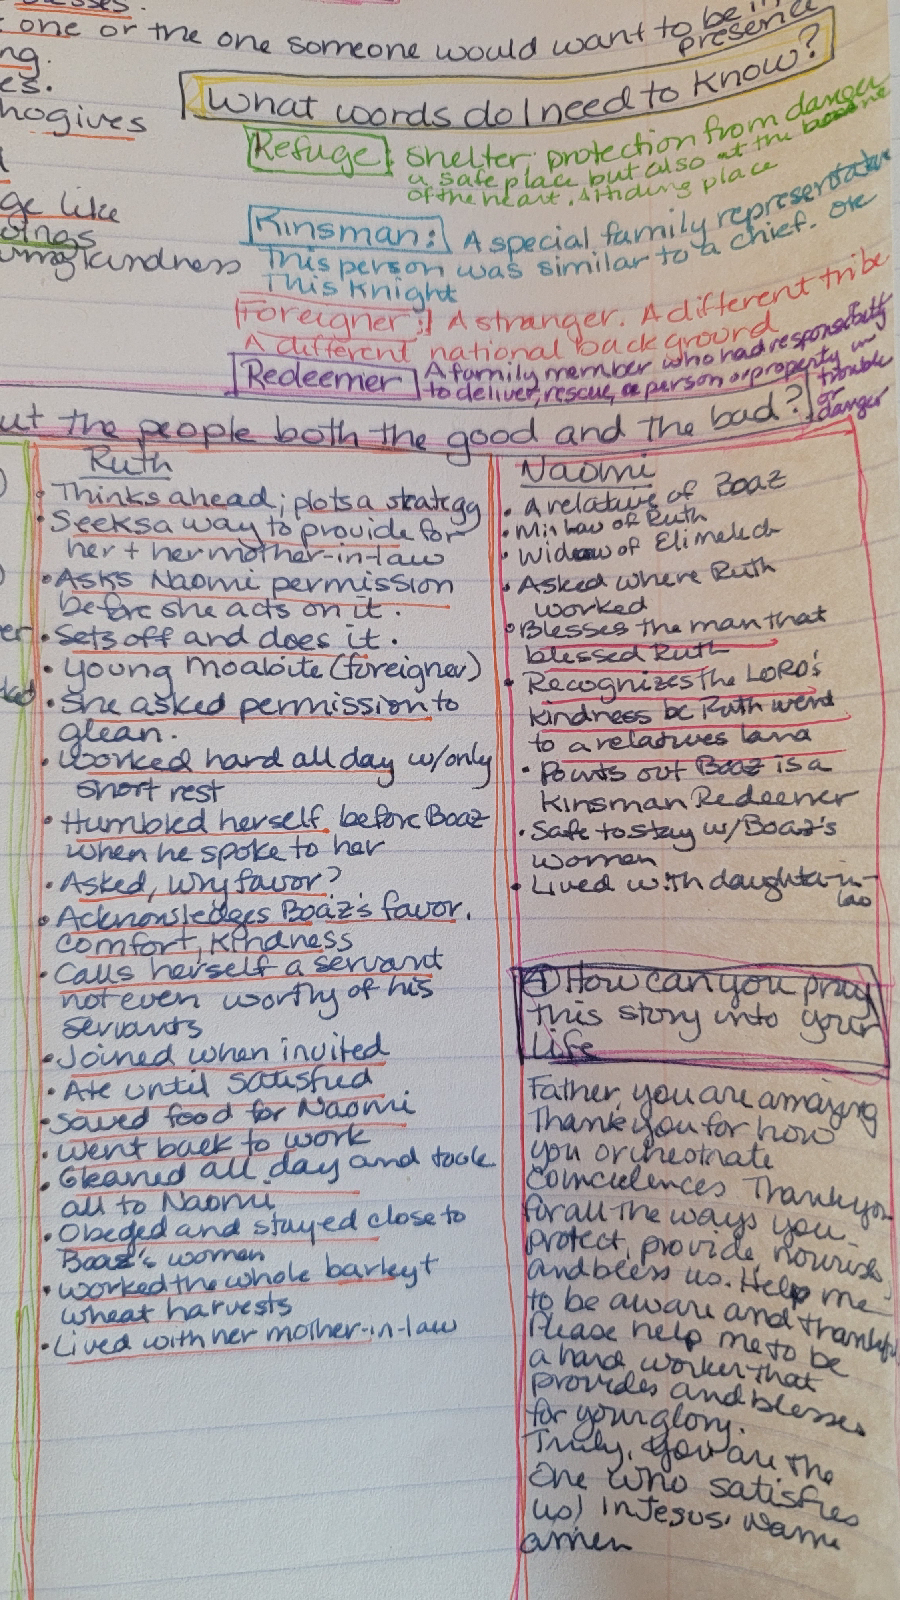 one or the one someone would want to be in
presence
ng.
es.
hogives
What words do I need to know?
Refuge: shelter, protection from danger
a safe place but also at the
of the heart. A hiding place
ge like
kindness
Kinsman: A special family representative
This person was similar to a chief. or
This Knight
Foreigner: A stranger. A different tribe
A different national background
Redeemer A family member who had responsibility
to deliver, rescue, a person or property in
trouble
or
danger
ut the people both the good and the bad?
Ruth
• Thinks ahead; plots a strategy
• Seeks a way to provide for
her + her mother-in-law
• Asks Naomi permission
before she acts on it.
• Sets off and does it.
• Young Moabite (foreigner)
• She asked permission to
glean.
• Worked hard all day w/only
short rest
• Humbled herself before Boaz
when he spoke to her
• Asked, why favor?
• Acknowledges Boaz's favor,
comfort, kindness
• Calls herself a servant
not even worthy of his
servants
• Joined when invited
• Ate until satisfied
• Saved food for Naomi
• Went back to work
• Gleaned all day and took
all to Naomi
• Obeyed and stayed close to
Boaz's women
• Worked the whole barley +
wheat harvests
• Lived with her mother-in-law
Naomi
• A relative of Boaz
• M in law of Ruth
• Widow of Elimelech
• Asked where Ruth
worked
• Blesses the man that
blessed Ruth
• Recognizes the LORD's
kindness bc Ruth went
to a relatives land
• Points out Boaz is a
Kinsman Redeemer
• Safe to stay w/Boaz's
women
• Lived with daughter-in-
law
④ How can you pray
this story into your
life
Father, you are amazing
Thank you for how
you orchestrate
coincidences Thank you
for all the ways you
protect, provide nourish
and bless us. Help me
to be aware and thankful
Please help me to be
a hard worker that
provides and blesses
for your glory.
Truly, you are the
one who satisfies
us) In Jesus' name
amen